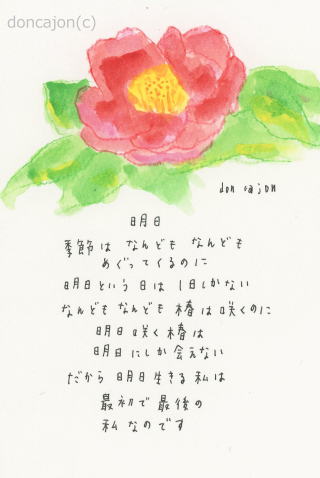 doncajon(c)
don cajon
明日
季節は なんども なんども
めぐってくるのに
明日という 日は 1日しかない
なんども なんども 椿は咲くのに
明日 咲く 椿は
明日にしか 会えない
だから 明日生きる 私は
最初で 最後の
私 なのです